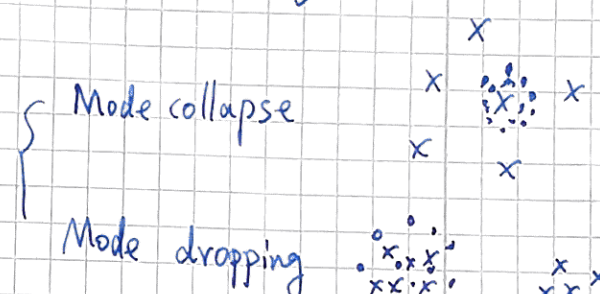 Mode collapse
Mode dropping